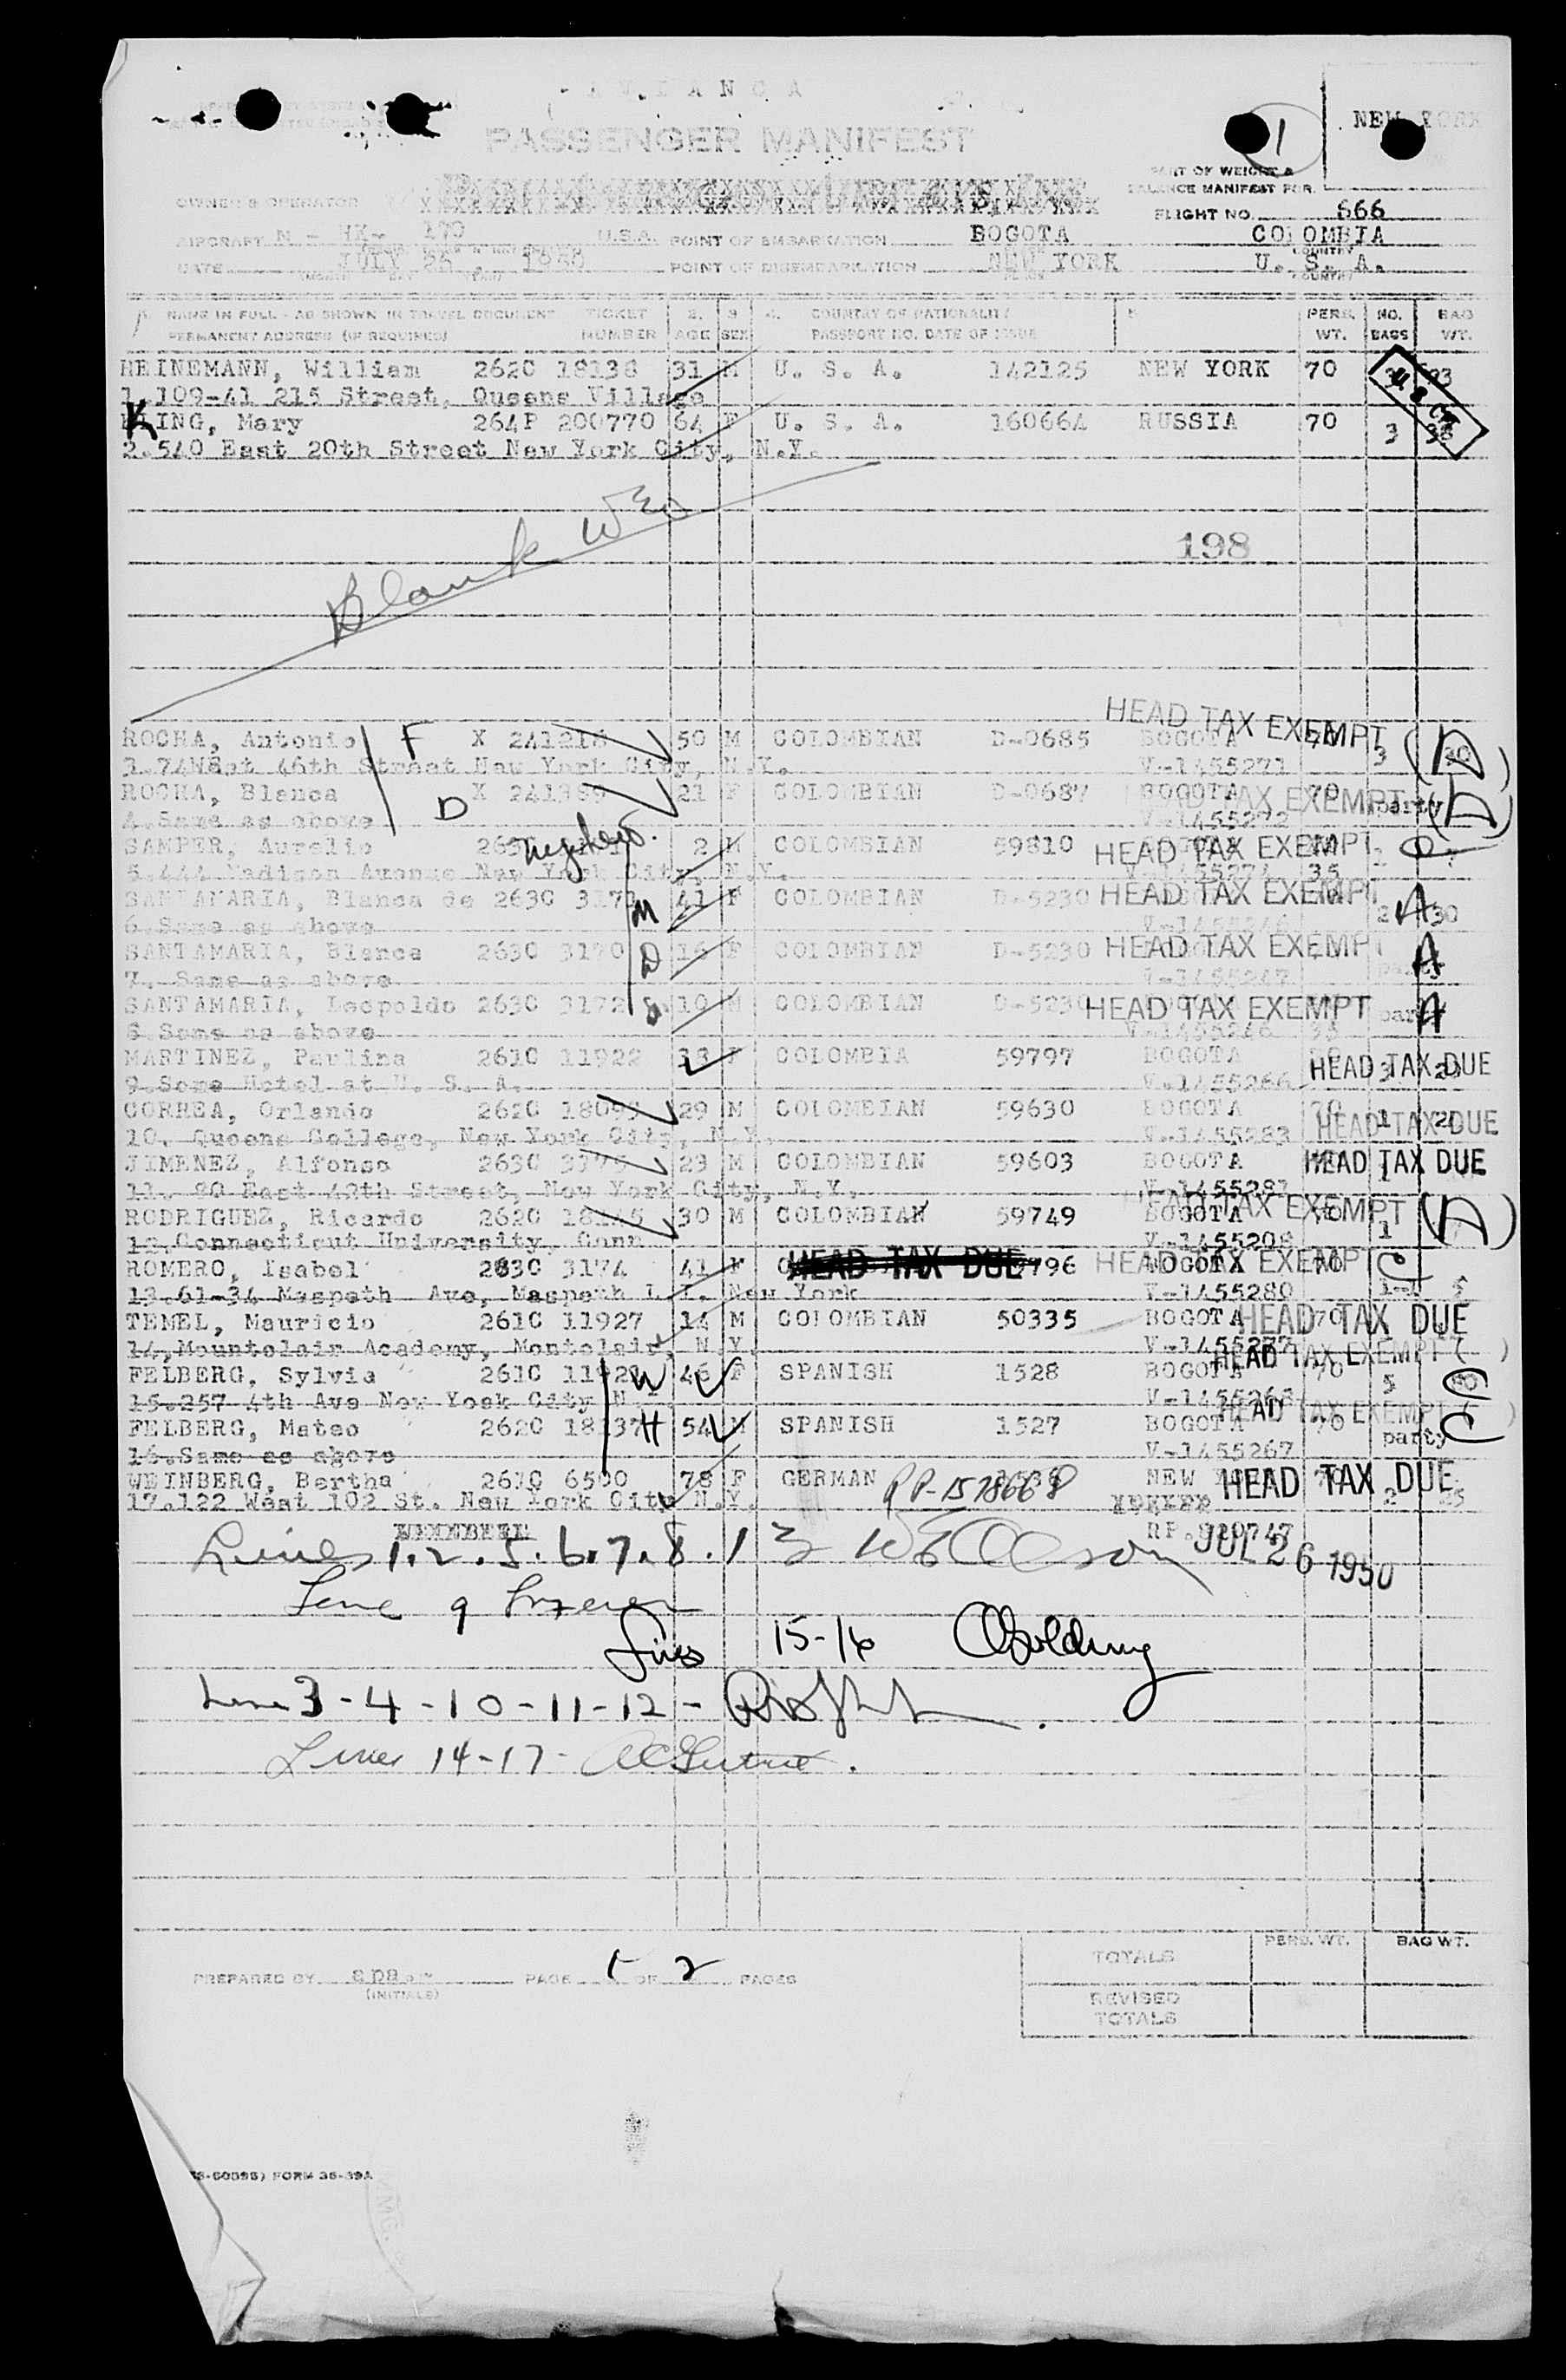 AVIANCA
PASSENGER MANIFEST
1
NEW YORK
PART OF WEIGHT &
BALANCE MANIFEST FOR
FLIGHT NO. 666
OWNER & OPERATOR
AIRCRAFT N - HK- 170 U.S.A. POINT OF EMBARKATION BOGOTA COLOMBIA
DATE JULY 26, 1950 POINT OF DISEMBARKATION NEW YORK U. S. A.
NAME IN FULL - AS SHOWN IN TRAVEL DOCUMENT TICKET 2. 3 4. COUNTRY OF NATIONALITY 5 PERS. NO. BAG
PERMANENT ADDRESS (IF REQUIRED) NUMBER AGE SEX PASSPORT NO. DATE OF ISSUE WT. BAGS WT.
HEINEMANN, William 262C 18136 31 M U. S. A. 142125 NEW YORK 70
1.109-41 215 Street, Queens Village
KLING, Mary 264P 200770 64 F U. S. A. 160664 RUSSIA 70 3
2.540 East 20th Street New York City, N.Y.
Blank
198
ROCHA, Antonio F X 241218 50 M COLOMBIAN D-0685 BOGOTA HEAD TAX EXEMPT 3 (A)
3.74West 46th Street New York City, N.Y. V-1455271
ROCHA, Blanca D X 21 F COLOMBIAN D-0687 BOGOTA 70 HEAD TAX EXEMPT party (A)
4.Same as above V-1455272
SAMPER, Aurelio nephew. 2 M COLOMBIAN 59810 HEAD TAX EXEMPT
5.444 Madison Avenue New York City, N.Y. 35
SANTAMARIA, Blanca de 263C 3171 M 41 F COLOMBIAN D-5230 HEAD TAX EXEMPT 2 A 30
6.Same as above
SANTAMARIA, Blanca 263C 3170 D 16 F COLOMBIAN D-5230 HEAD TAX EXEMPT A
7. Same as above V-1455247
SANTAMARIA, Leopoldo 263C 3172 S 10 M COLOMBIAN D-5230 HEAD TAX EXEMPT A
8.Same as above V-1455246 35
MARTINEZ, Paulina 261C 11922 F COLOMBIA 59797 BOGOTA HEAD TAX DUE
9.Some Hotel at U. S. A. V-1455266
CORREA, Orlando 262C 29 M COLOMBIAN 59630 BOGOTA 70 1 HEAD TAX DUE
10. Queens College, New York City, N.Y. V-1455283
JIMENEZ, Alfonso 263C 23 M COLOMBIAN 59603 BOGOTA HEAD TAX DUE
11. 20 East 42th Street, New York City, N.Y. V-1455281
RODRIGUEZ, Ricardo 262C 30 M COLOMBIAN 59749 BOGOTA 70 HEAD TAX EXEMPT 1 (A)
12.Connecticut University, Conn V-1455208
ROMERO, Isabel 263C 3174 41 F HEAD TAX DUE BOGOTA 70 HEAD TAX EXEMPT C
13.61-34 Maspeth Ave, Maspeth L.I. New York V-1455280 5
TEMEL, Mauricio 261C 11927 14 M COLOMBIAN 50335 BOGOTA 70 HEAD TAX DUE
14,Mountclair Academy, Montclair, N.Y. V-1455277
FELBERG, Sylvia 261C W 46 F SPANISH 1528 BOGOTA 70 HEAD TAX EXEMPT ( ) 5 C
15.257 4th Ave New York City N. V-1455268
FELBERG, Mateo 262C 18137 H 54 M SPANISH 1527 BOGOTA 70 HEAD TAX EXEMPT ( ) party C
16.Same as above V-1455267
WEINBERG, Bertha 261C 6500 78 F GERMAN RP-1578668 NEW YORK HEAD TAX DUE 2
17.122 West 102 St. New York City N.Y.
Lines 1.2.5.6.7.8.13
JUL 26 1950
Line 9
Lines 15-16 Golding
Line 3-4-10-11-12-
Lines 14-17-
PREPARED BY PAGE 1 OF 2 PAGES
(INITIALS)
TOTALS PERS. WT. BAG WT.
REVISED
TOTALS
FORM 36-39A